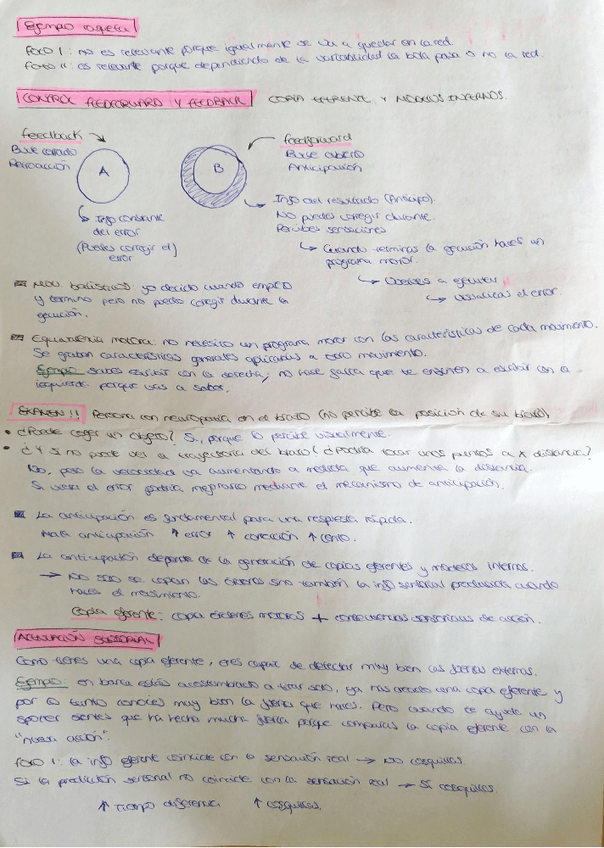 Ejemplo raqueta
FOTO I: no es relevante porque igualmente se va a quedar en la red.
FOTO II: es relevante porque dependiendo de la variabilidad la bola pasa o no la red.
CONTROL FEEDFORWARD Y FEEDBACK COPIA EFERENTE Y MODELOS INTERNOS.
feedback
Bucle cerrado
Retroacción
A
Info constante
del error
(Puedes corregir el)
error
feedforward
Bucle abierto
Anticipación
B
Info del resultado (Anticipo).
No puedes corregir durante.
Percibes sensaciones
Cuando terminas la ejecución haces un
programa motor.
Vuelves a ejecutar
visualizas el error.
Mov. balísticos: yo decido cuando empiezo
y termino pero no puedo corregir durante la
ejecución.
Equivalencia motora: no necesito un programa motor con las características de cada movimiento.
Se graban características generales aplicadas a otro movimiento.
Ejemplo: sabes escribir con la derecha, no hace falta que te enseñen a escribir con la
izquierda porque vas a saber.
EXAMEN!! Persona con neuropatía en el brazo (no percibe la posición de su brazo)
• ¿Puede coger un objeto? Si, porque lo percibe visualmente.
• ¿Y si no puede ver la trayectoria del brazo? ¿Podría tocar unos puntos a X distancia?
No, pero la velocidad va aumentando a medida que aumenta la distancia.
Si viera el error podría mejorarlo mediante el mecanismo de anticipación.
La anticipación es fundamental para una respuesta rápida.
Mala anticipación ↑ error ↑ corrección ↑ lento.
La anticipación depende de la generación de copias eferentes y modelos internos.
→ No solo se copian las órdenes sino también la info sensorial producida cuando
haces el movimiento.
Copia eferente: copia órdenes motoras + consecuencias sensoriales de acción.
ATENUACIÓN SENSORIAL
Como tienes una copia eferente, eres capaz de detectar muy bien las fuerzas externas.
Ejemplo: en barra estás acostumbrado a tirar solo, ya has creado una copia eferente y
por lo tanto conoces muy bien la fuerza que haces. Pero cuando te ayuda un
sporter sientes que ha hecho mucha fuerza porque comparas la copia eferente con la
"nueva acción".
FOTO 1: la info eferente coincide con la sensación real → NO cosquillas.
Si la predicción sensorial no coincide con la sensación real → SÍ cosquillas.
↑ tiempo diferencia ↑ cosquillas.